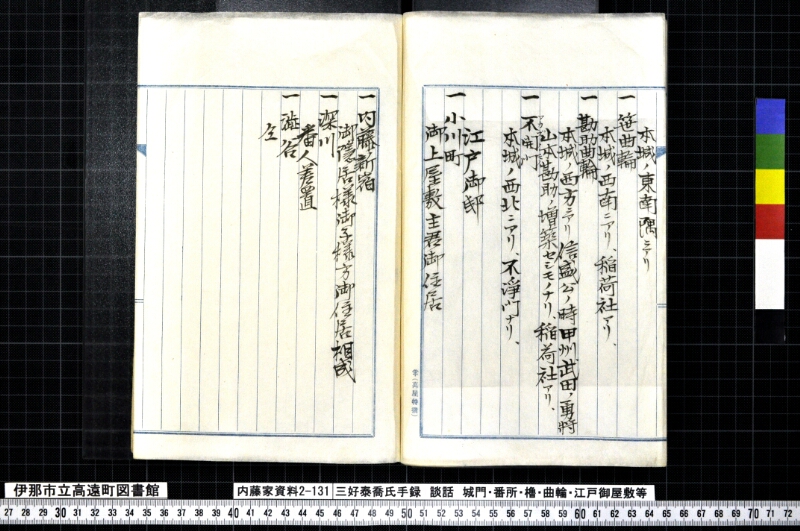 本城ノ東南隅ニアリ
一 笹曲輪
本城ノ西南ニアリ、稲荷社アリ、
一 勘助曲輪
本城ノ西方ニアリ 信盛公ノ時甲州武田ノ勇将
山本勘助ノ増築セシモノナリ、稲荷社アリ、
一 不明門
本城ノ西北ニアリ、不浄門ナリ、
江戸御邸
一 小川町
御上屋敷主君御住居
一 内藤新宿
御隠居様御子様方御住居相成
一 深川
番人差置
一 澁谷
仝
伊那市立高遠町図書館
内藤家資料2-131 三好泰喬氏手録 談話 城門・番所・櫓・曲輪・江戸御屋敷等
27 28 29 30 31 32 33 34 35 36 37 38 39 40 41 42 43 44 45 46 47 48 49 50 51 52 53 54 55 56 57 58 59 60 61 62 63 64 65 66 67 68 69 70 71 72